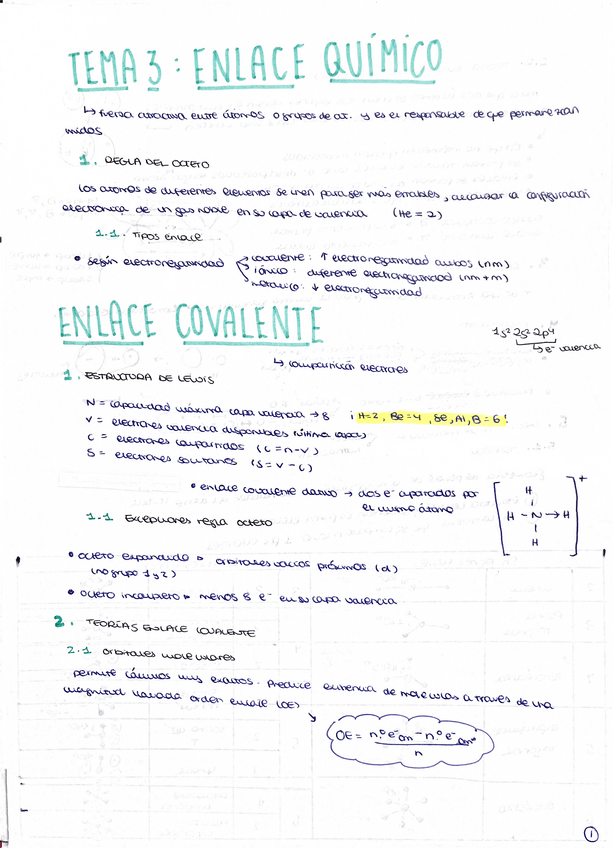 TEMA 3 : ENLACE QUÍMICO
↳ fuerza atractiva entre átomos o grupos de at. y es el responsable de que permanezcan
unidos
1. REGLA DEL OCTETO
Los átomos de diferentes elementos se unen para ser más estables, alcanzar la configuración
electrónica de un gas noble en su capa de valencia (He = 2)
1.1. Tipos enlace
• según electronegatividad
covalente: ↑ electronegatividad ambos (nm)
iónico: diferente electronegatividad (nm + m)
metálico: ↓ electronegatividad
ENLACE COVALENTE
1s² 2s² 2p⁴
↳ e⁻ valencia
↳ compartición electrones
1. ESTRUCTURA DE LEWIS
N = capacidad máxima capa valencia → 8 ¡ H=2, Be=4, Al, B=6!
V = electrones valencia disponibles (última capa)
C = electrones compartidos (C = n - v)
S = electrones solitarios (S = v - c)
• enlace covalente dativo → dos e⁻ aportados por
el mismo átomo
[H
H - N → H
H]+
1.1 Excepciones regla octeto
• octeto expandido → orbitales vacíos próximos (d)
(no grupo 1 y 2)
• octeto incompleto → menos 8 e⁻ en su capa valencia
2. TEORÍAS ENLACE COVALENTE
2.1 orbitales moleculares
permite cálculos muy exactos. Predice existencia de moléculas a través de una
magnitud llamada orden enlace (OE)
OE = n.º e⁻ OM - n.º e⁻ OM*
n
1